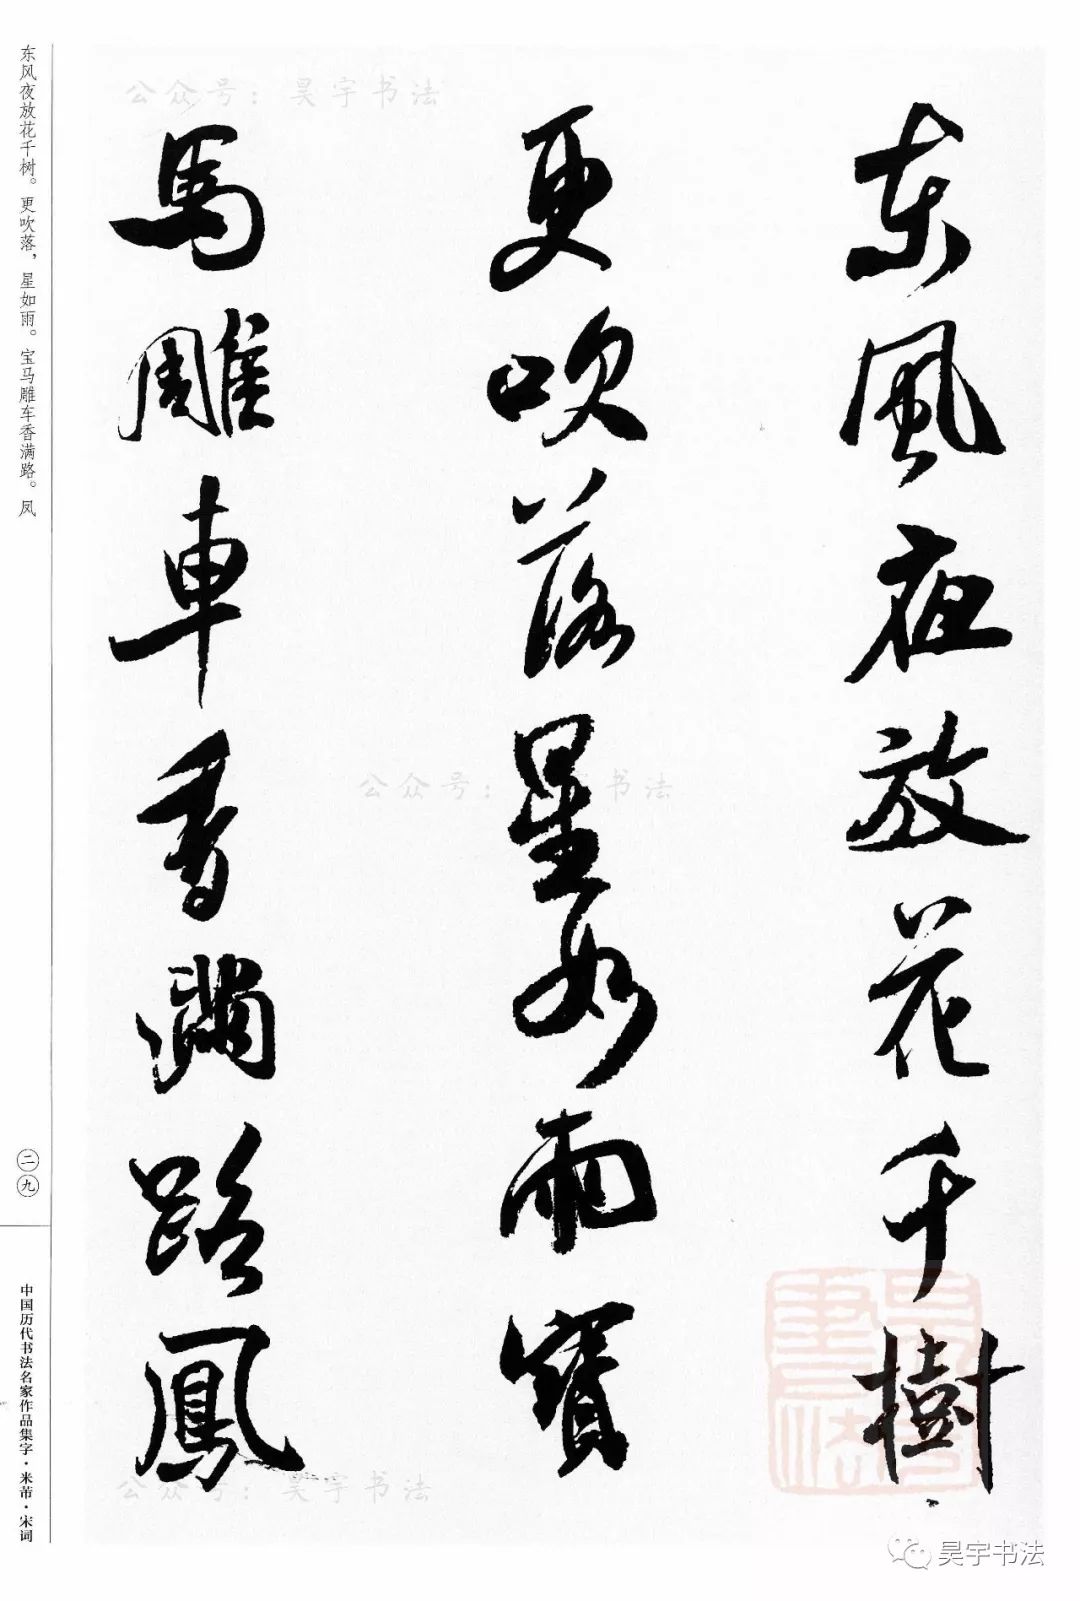 東風夜放花千樹
更吹落星如雨寶
馬雕車香滿路鳳
东风夜放花千树。更吹落，星如雨。宝马雕车香满路。凤
二九
中国历代书法名家作品集字·米芾·宋词
公众号：昊宇书法
公众号：昊宇书法
公众号：昊宇书法
昊宇书法